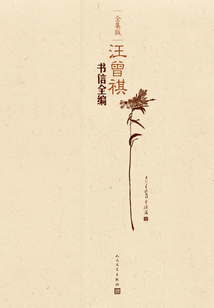 全集版
汪曾祺
书信全编
人民文学出版社